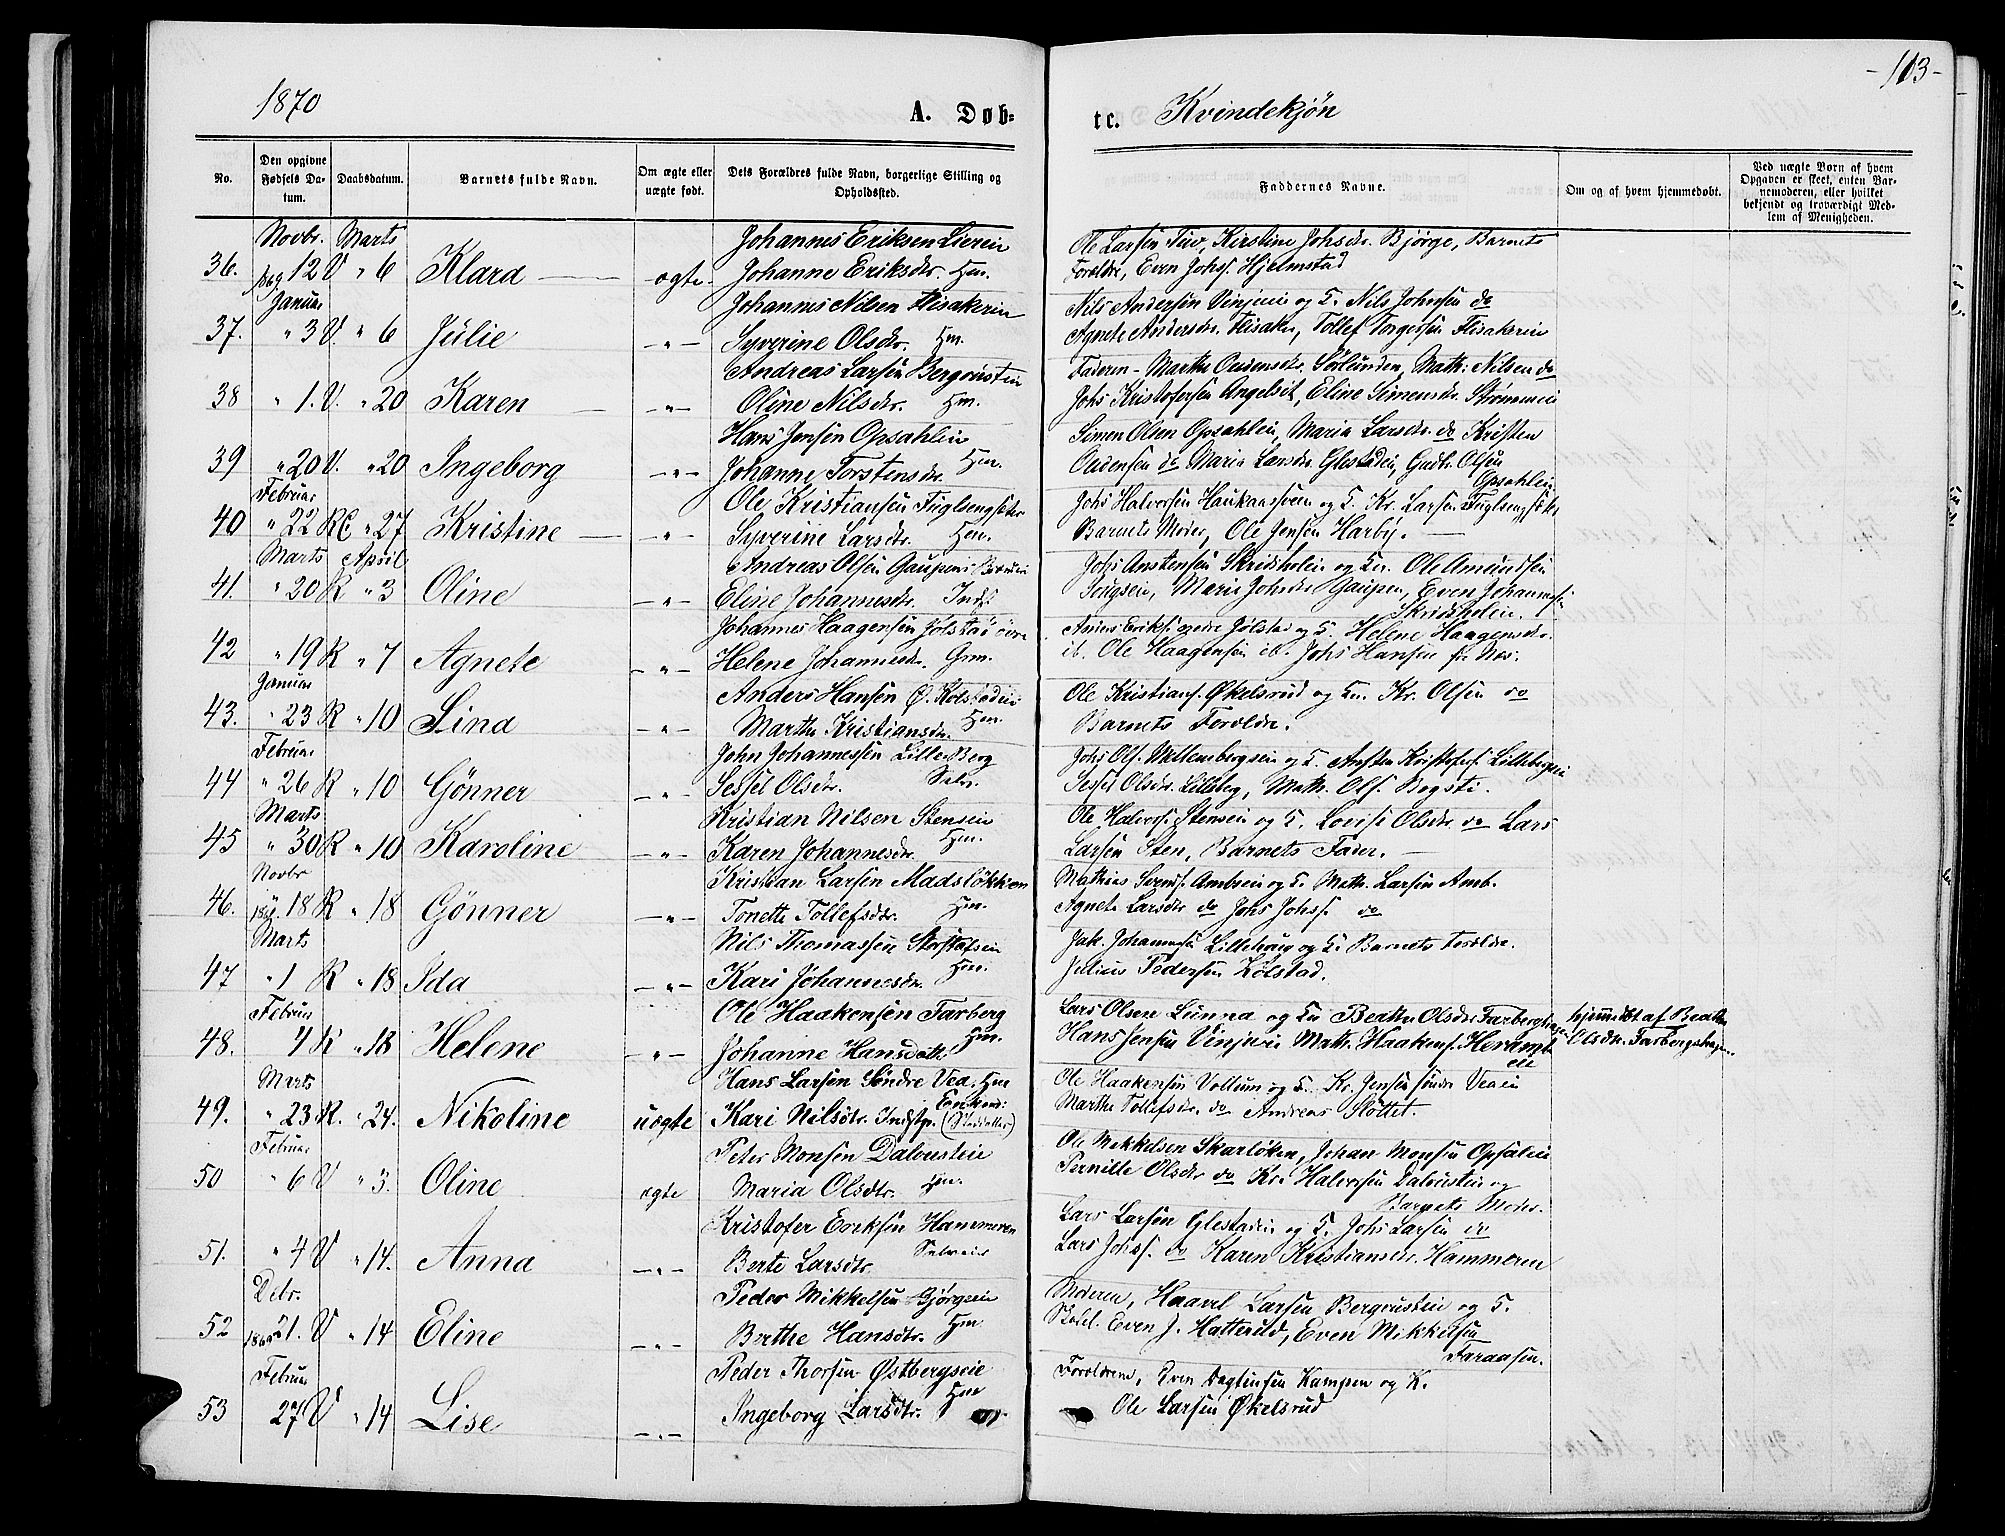 1870
A. Døb=
te. Kvindekjøn
-113-
No.
Den opgivne Fødsels Datum.
Daabsdatum.
Barnets fulde Navn.
Om ægte eller uægte født.
Dets Forældres fulde Navn, borgerlige Stilling og Opholdsted.
Faddernes Navne.
Om og af hvem hjemmedøbt.
Ved uægte Børn af hvem Opgaven er skeet, enten Barnemoderen, eller hvilket bekjendt og troværdigt Medlem af Menigheden.
Novbr. Marts Johannes Eriksen Lierein Ole Larsen Kirstine Johsdr. Bjørge, Barnets
36. 1869 12 V " 6 Klara — ægte Johanne Eriksdr. Hm. Forældre, Even Johs. Hjelmstad
Januar Johannes Nilsen Flisakerin Nils Andersen Vinjuei og K. Nils Johnsen do
37. " 3 V. " 6 Julie — " — Syverine Olsdr. Hm. Agnete Andersdr. Flisaker, Tollef Torgersen Flisakerein
Andreas Larsen Bergrustein Faderen - Marthe Oudensdr. Sørlunden, Math: Nilsen do
38 " 1. V. " 20 Karen — " — Oline Nilsdr. Hm. Johs Kristofersen Angelsit, Eline Simensdr. Strømmen
Hans Jensen Opsahlein Simen Olsen Opsahlein, Maria Larsdr. do Kristen
39 " 20 V. " 20 Ingeborg — " — Johanne Torstensdr. Hm. Oudensen do Maria Larsdr. Glestadein, Gudbr. Olsen Opsahlein
Februar Ole Kristiansen Fuglsengsæter Johs Halvorsen Haukaassveen og K. Kr. Larsen Fuglsengsæter
40 " 22 K " 27 Kristine — " — Syverine Larsdr. Hm. Barnets Moder, Ole Jensen Harby. —
Marts April Andreas Olsen Gaupen Johs Anstensen Skridsholein og K. Ole Amundsen
41. " 20 K " 3 Oline — " — Eline Johannesdr. Inds. Marie Johsdr Gaupen, Even Johannesen Skridsholein.
Johannes Haagensen Jølstad øvre Anders Eriks. nedre Jølstad og K. Helene Haagensdr.
42 " 19 K " 7 Agnete — " — Helene Johannesdr. Grm. ib. Ole Haagensen ib. Johs Hansen
Januar Anders Hansen Ø. Kolstadein Ole Kristians. Økelsrud og K. Kr. Olsen do
43. " 23 K " 10 Lina — " — Marthe Kristiansdr. Hm. Barnets Forældre.
Februar John Johannessen Lille-Berg Johs Ols. Mellembergsein og K. Ansten Kristofers. Lillebergein
44 " 26 K " 10 Gønner — " — Sessel Olsdr. Selv. Sessel Olsdr. Lilleberg, Math. Ols. Rogsti.
Marts Kristian Nilsen Stensein Ole Halvors. Stensein og K. Lovise Olsdr. do Lars
45 " 30 K " 10 Karoline — " — Karen Johannesdr. Hm. Larsen Sten, Barnets Fader. —
Novbr Kristian Larsen Madsløkken Mathias Svends. Ambrein og K. Math. Larsen Amb.
46. 1869 18 K " 18 Gønner — " — Tonette Tollefsdr. Hm. Agnete Larsdr do Johs Johs. do
Marts Nils Thomassen Storstafein Jak. Johannesen Lillehaug og K. Barnets Forældre.
47 " 1 K " 18 Ida — " — Kari Johannesdr. Hm. Julius Pedersen Kolstad.
Februar Ole Haakensen Farberg Lars Olsen Lunna og K. Beathe Olsdr. Farbergshagen hjemmdbt af Beathe
48. 4 K " 18 Helene — " — Johanne Hansdatter Hm. Hans Jensen Vinjuei Math. Haakens. Herambeie Olsdr. Farbergshagen.
Marts Hans Larsen Søndre Vea. Hm Ole Haakensen Vollum og K. Kr. Jensen søndre Veaein
49. " 23 K. " 24. Nikoline uægte Kari Nilsdtr. Indstp. Marthe Tollefsdr. do Andreas Slottet.
Februar Peter Monsen Dalbustein Ole Mikkelsen Skarløken, Johan Monsen Opsalein
50 " 6 V " 3. Oline ægte Maria Olsdtr. Hm. Pernille Olsdr do Kr. Halvorsen Dalbustein og Barnets Moder.
Kristofer Eriksen Hammeren Lars Larsen Glestadein og K. Johs Larsen do
51. " 4 V " 14. Anna — " — Berte Larsdtr. Selveier Lars Johs. do Karen Kristiansdr. Hammeren
Debr. Peder Mikkelsen Gjørgsein Moderen, Haavel Larsen Bergrustein og K.
52 1869 21. V " 14 Eline — " — Berthe Hansdtr. Hm. Even J. Hatterud, Even Mikkelsen Faraasen.
Februar Peder Thorsen Østbergseie Forældrene, Even Dagfinsen Kampen og K.
53 27 V " 14 Lise — " — Ingeborg Larsdtr. Hm Ole Larsen Økelsrud